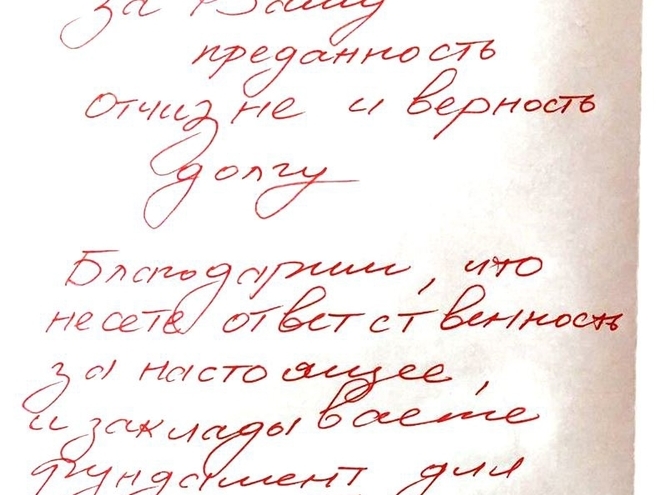 за Вашу
преданность
Отчизне и верность
долгу
Благодарим, что
несете ответственность
за настоящее,
и закладываете
фундамент для